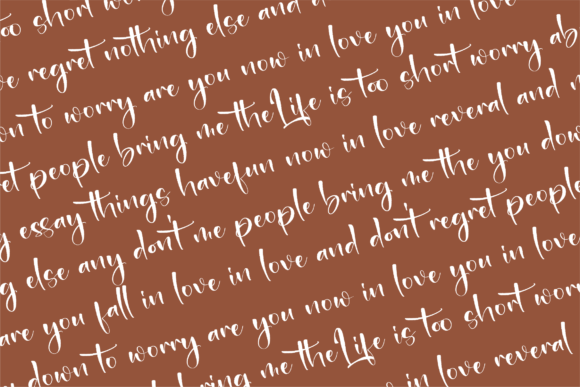 too short worry
regret nothing else and
to worry are you now in love you in love
people bring me theLife is too short worry ab
essay things havefun now in love reveral and
else any don't me people bring me the you dow
are you fall in love in love and don't regret people
down to worry are you now in love you in love
bring me theLife is too short worr
in love reveral